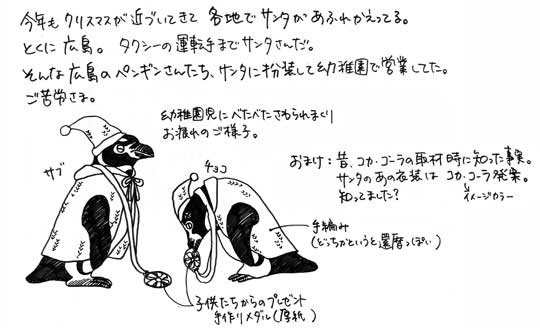 今年も クリスマスが近づいてきて 各地でサンタがあふれかえってる。
とくに広島。 タクシーの運転手までサンタさんだ。
そんな広島のペンギンさんたち、サンタに扮装して幼稚園で営業してた。
ご苦労さま。
幼稚園児にべたべたさわられまくり
お疲れのご様子。
サブ
チョコ
おまけ：昔、コカ・コーラの取材時に知った事実。
サンタのあの衣装は コカ・コーラ発案。
知ってました？
イメージカラー
手編み
(どっちかというと還暦っぽい)
子供たちからのプレゼント
手作りメダル(厚紙)